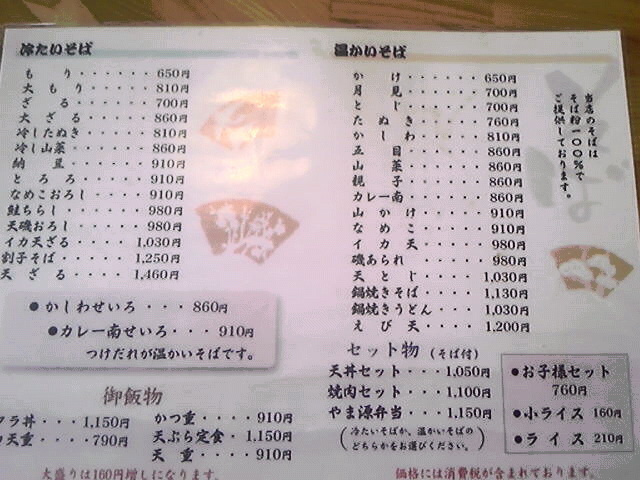 冷たいそば
もり・・・・・・650円
大もり・・・・・810円
ざる・・・・・・700円
大ざる・・・・・860円
冷したぬき・・・・810円
冷し山菜・・・・・860円
納豆・・・・・・910円
とろろ・・・・・910円
なめこおろし・・・・910円
鮭ちらし・・・・・980円
天磯おろし・・・・980円
イカ天ざる・・・・1,030円
割子そば・・・・・1,250円
天ざる・・・・・1,460円
●かしわせいろ・・・860円
●カレー南せいろ・・・910円
つけだれが温かいそばです。
御飯物
ラ丼・・・1,150円
天重・・・・790円
かつ重・・・・910円
天ぷら定食・1,150円
天重・・・・910円
大盛りは160円増しになります。
温かいそば
かけ・・・・・・650円
月見・・・・・・700円
とじ・・・・・・700円
たぬき・・・・・760円
かしわ・・・・・810円
五目・・・・・・860円
山菜・・・・・・860円
親子・・・・・・860円
カレー南・・・・・860円
山かけ・・・・・910円
なめこ・・・・・910円
イカ天・・・・・980円
磯あられ・・・・・980円
天とじ・・・・・1,030円
鍋焼きそば・・・・1,130円
鍋焼きうどん・・・1,030円
えび天・・・・・1,200円
当店のそばは
そば粉一〇〇%で
ご提供しております。
そば
セット物(そば付)
天丼セット・・・1,050円
焼肉セット・・・1,100円
やま源弁当・・・1,150円
(冷たいそばか、温かいそばの
どちらかをお選びください。)
●お子様セット
760円
●小ライス 160円
●ライス 210円
価格には消費税が含まれております。